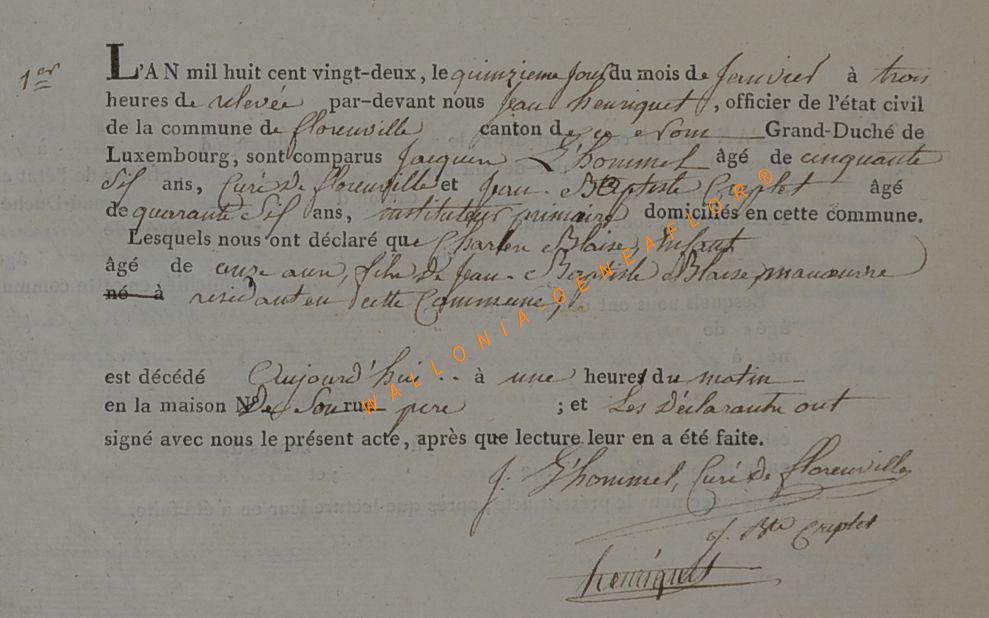 1er
L'AN mil huit cent vingt-deux, le quinzieme jour du mois de Janvier à trois
heures de relevée par-devant nous Jean henriquet, officier de l'état civil
de la commune de florenville canton de ce nom Grand-Duché de
Luxembourg, sont comparus Jacques L'hommel âgé de cinquante
Six ans, Curé De florenville et Jean-Baptiste Criplet âgé
de quarante Six ans, instituteur primaire domiciliés en cette commune.
Lesquels nous ont déclaré que Charles Blaise, Enfant
âgé de onze ans, fils De Jean-Baptiste Blaise, manoeuvre
né à residant en cette Commune,
est décédé Aujourd'hui à une heures du matin
en la maison N° De Son rue pere ; et Les Déclarants ont
signé avec nous le présent acte, après que lecture leur en a été faite.
J. L'hommel, Curé De florenville
J. Bte Criplet
henriquet
WALLONIA-GENEAFLOR®